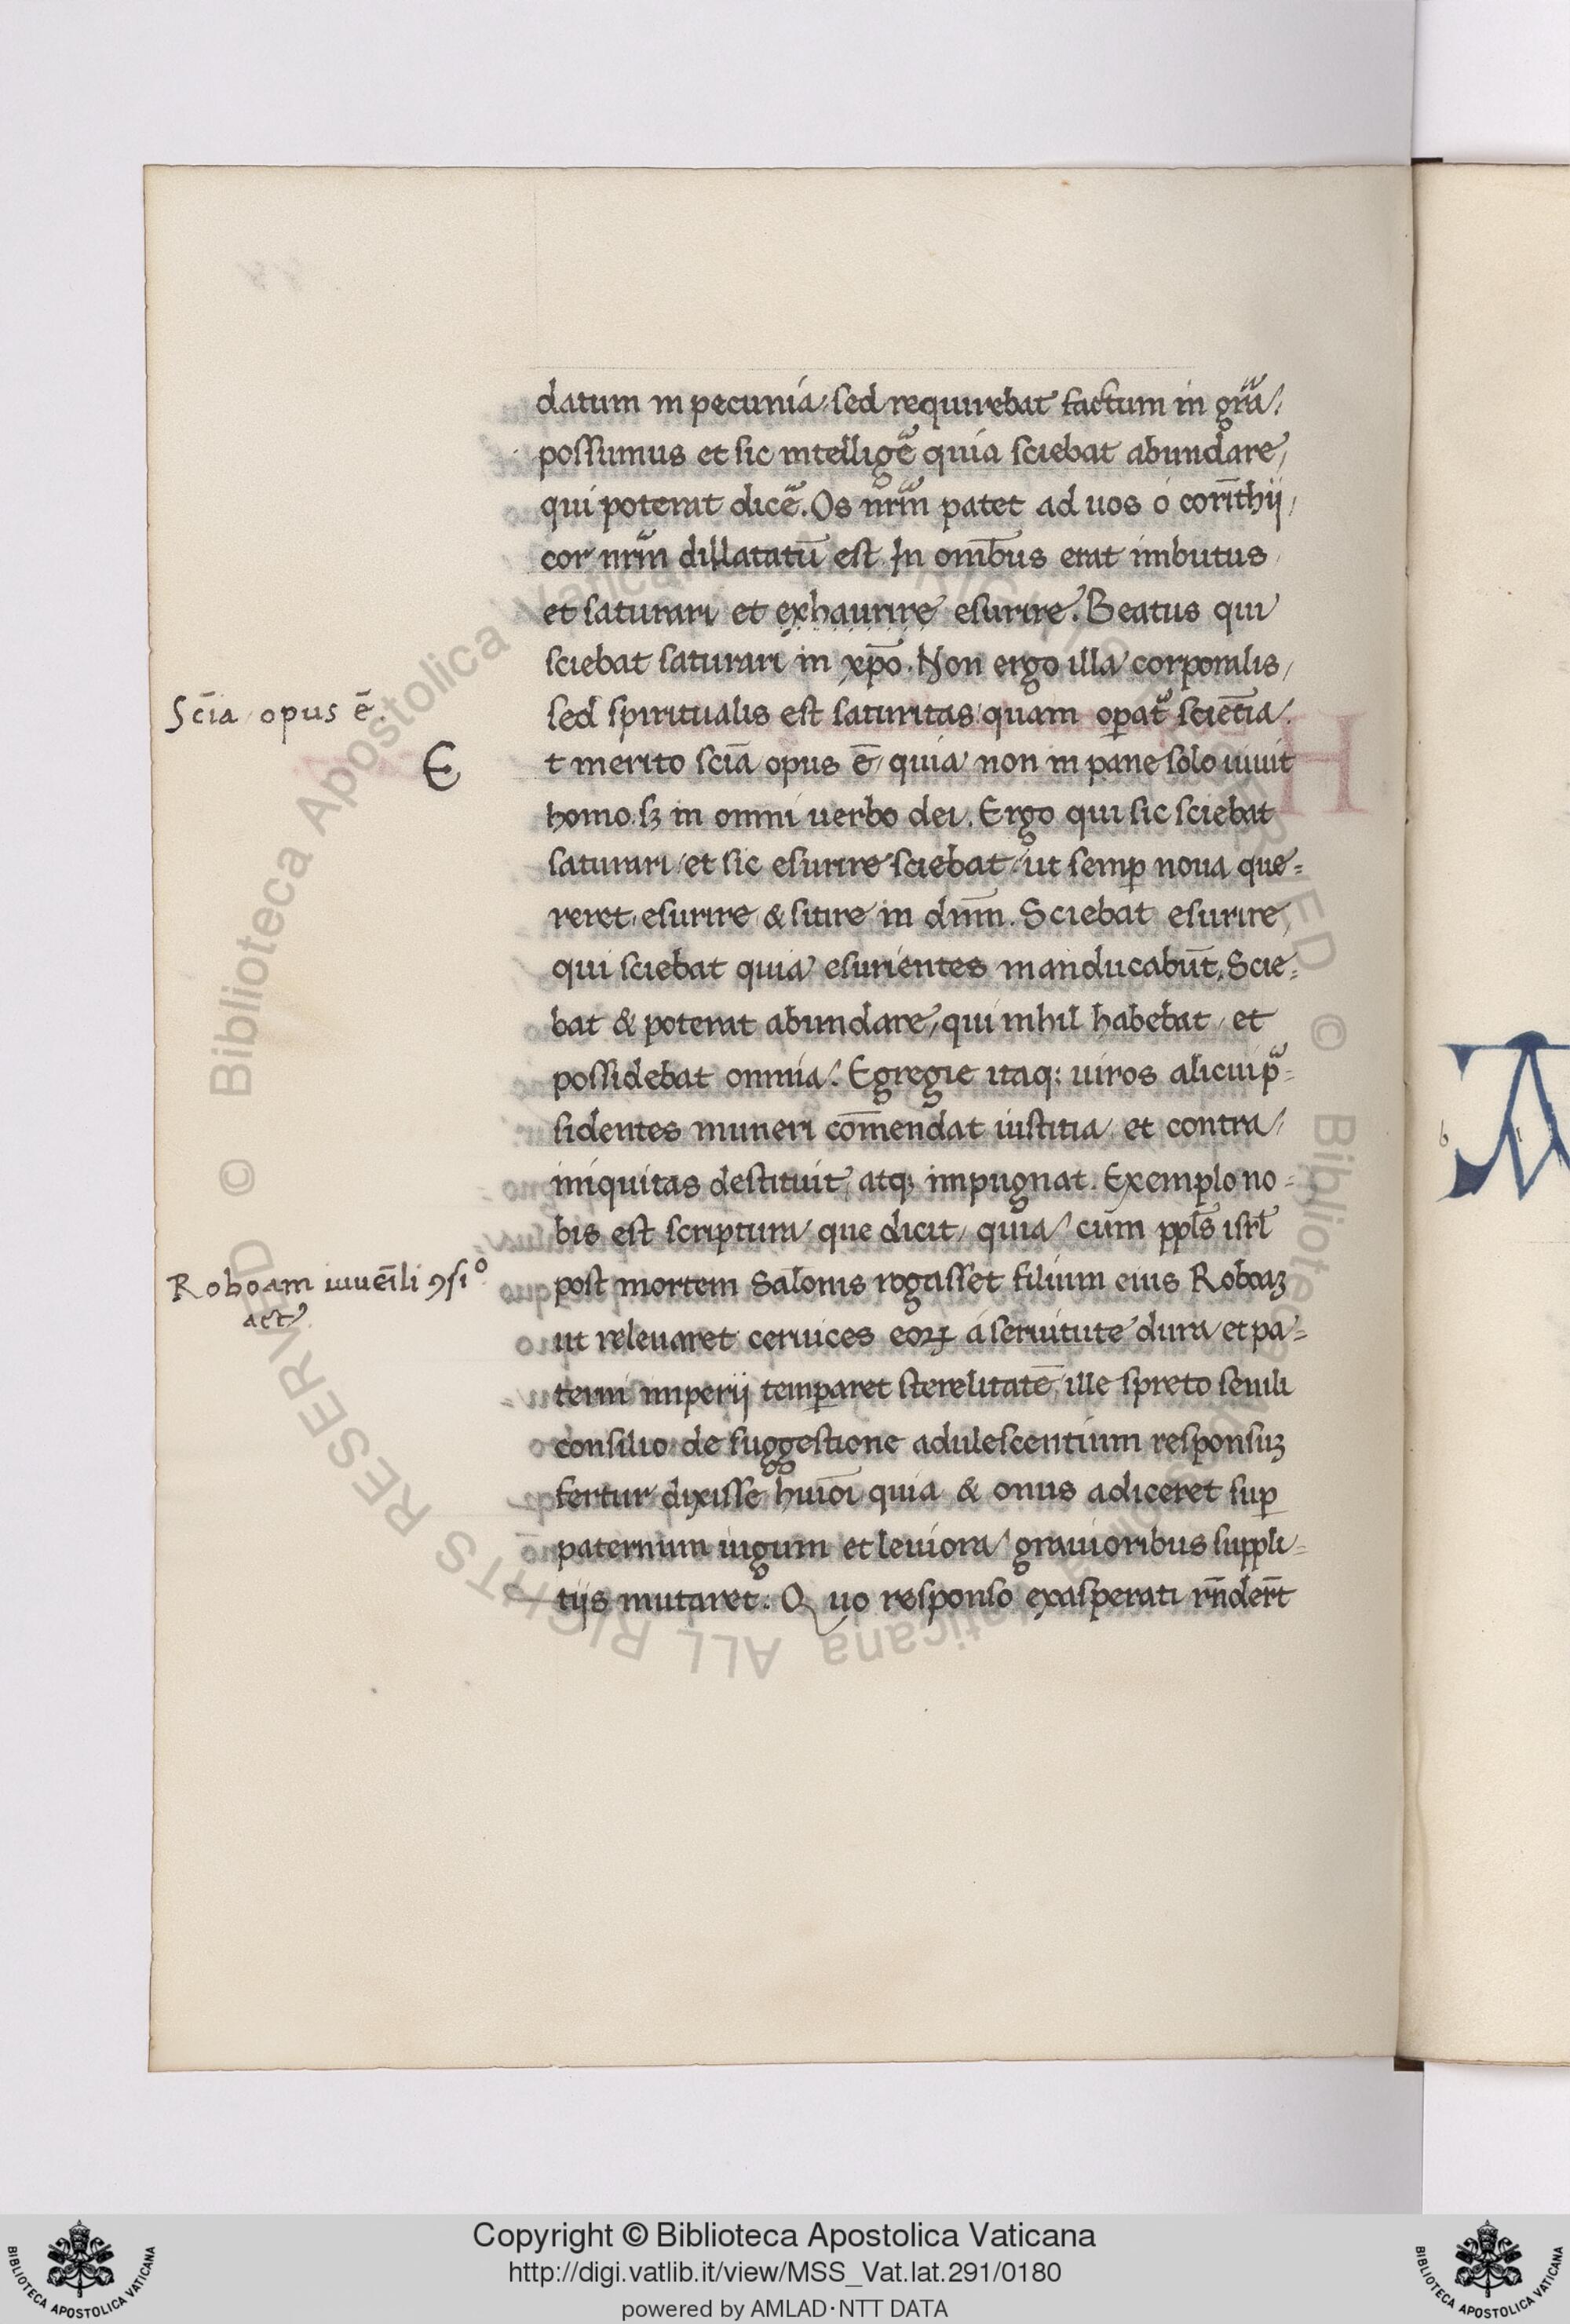 datum in pecunia, sed requirebat factum in gr̃a.
possumus et sic intelligẽ quia sciebat abundare,
qui poterat dicẽ. Os nr̃m patet ad uos o cor̃ithij,
cor nr̃m dillatatũ est. In om̃ibus erat imbutus
et saturari et exhaurire esurire. Beatus qui
sciebat saturari in xp̃o. Non ergo illa corporalis,
Sc̃ia opus ẽ.
sed spiritualis est saturitas quam oꝑat̃ sciẽtia.
E
t merito scĩa opus ẽ, quia non in pane solo uiuit
homo. sꝫ in omni uerbo dei. Ergo qui sic sciebat
saturari, et sic esurire sciebat, ut semꝑ noua que-
reret, esurire & sitire in dñm. Sciebat esurire,
qui sciebat quia esurientes manducabũt. Scie-
bat & poterat abundare, qui nihil habebat, et
possidebat omnia. Egregie itaq: uiros alicui p̃-
sidentes muneri com̃endat iustitia, et contra,
iniquitas destituit, atqꝫ impugnat. Exemplo no-
bis est scriptura, que dicit, quia cum ppl̃s isrl̃
Roboam iuuẽili ꝯsi°
act
post mortem Salonis rogasset filium eius Roboaꝫ
ut releuaret ceruices eoꝝ á seruitute dura et pa-
terni imperij temꝑaret sterelitatẽ, ille spreto senili
consilio de suggestione adulescentium responsuꝫ
fertur dixisse huiõi quia & onus adiceret suꝑ
paternum iugum et leuiora grauioribus suppli-
tijs mutaret. Quo responso exasperati rñder̃t
b
A
Copyright © Biblioteca Apostolica Vaticana
http://digi.vatlib.it/view/MSS_Vat.lat.291/0180
powered by AMLAD·NTT DATA